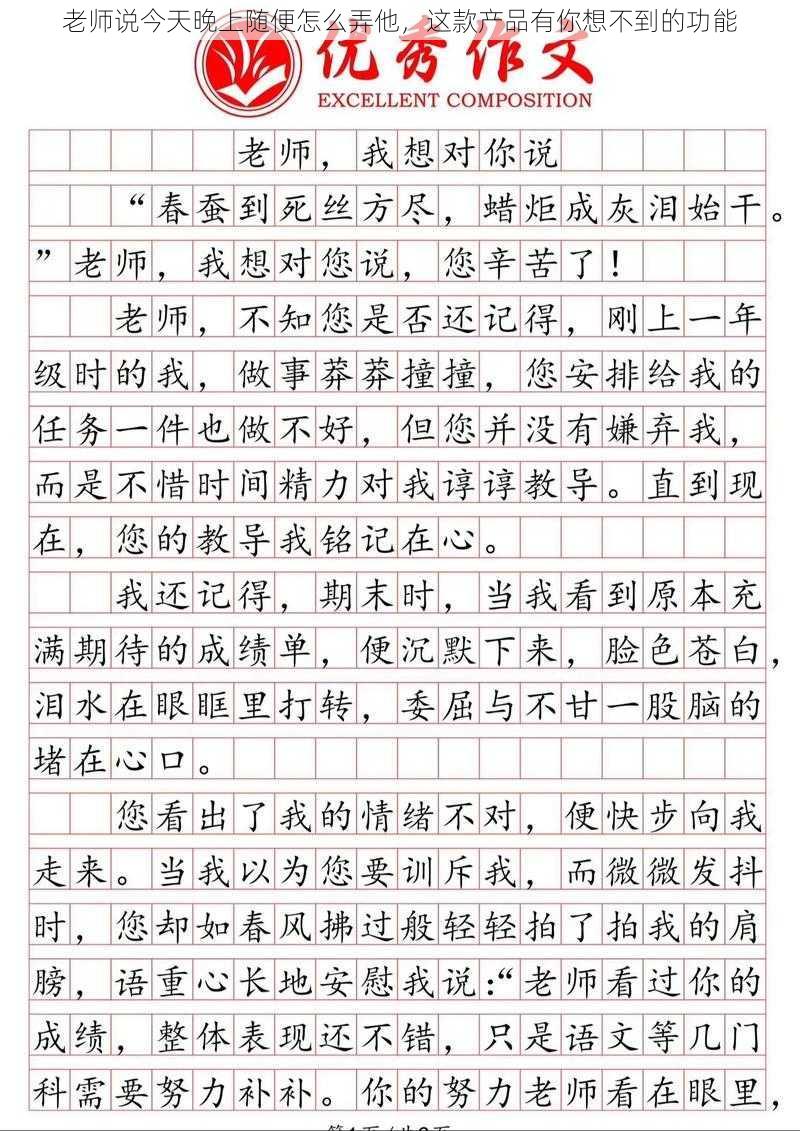 老师说今天晚上随便怎么弄他，这款产品有你想不到的功能
优秀作文
EXCELLENT COMPOSITION
老师，我想对你说
“春蚕到死丝方尽，蜡炬成灰泪始干。
”老师，我想对您说，您辛苦了！
老师，不知您是否还记得，刚上一年
级时的我，做事莽莽撞撞，您安排给我的
任务一件也做不好，但您并没有嫌弃我，
而是不惜时间精力对我谆谆教导。直到现
在，您的教导我铭记在心。
我还记得，期末时，当我看到原本充
满期待的成绩单，便沉默下来，脸色苍白，
泪水在眼眶里打转，委屈与不甘一股脑的
堵在心口。
您看出了我的情绪不对，便快步向我
走来。当我以为您要训斥我，而微微发抖
时，您却如春风拂过般轻轻拍了拍我的肩
膀，语重心长地安慰我说：“老师看过你的
成绩，整体表现还不错，只是语文等几门
科需要努力补补。你的努力老师看在眼里，